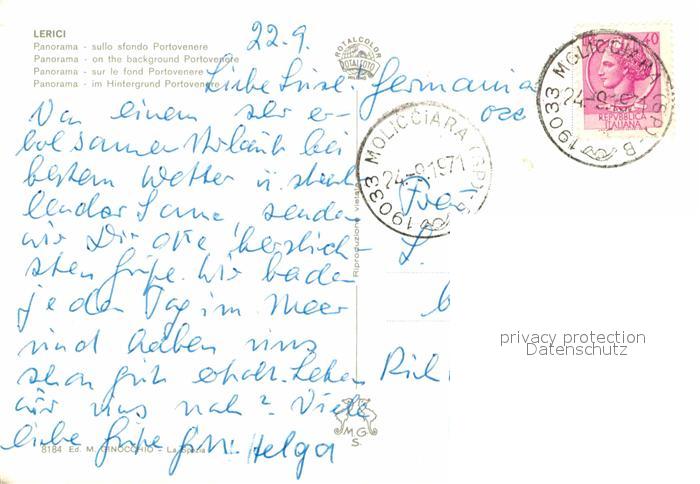 LERICI
Panorama - sullo sfondo Portovenere
Panorama - on the background Portovenere
Panorama - sur le fond Portovenere
Panorama - im Hintergrund Portovenere
22.9.
Liebe Luise! Germania
Von einem sehr er-
holsamen Urlaub bei
bestem Wetter u. strah
lender Sonne, senden
wir Dir die herzlich-
sten Grüße. Wir baden
jeden Tag im Meer
und haben uns
schon gut erholt. Sehen
wir uns nach? Viele
liebe Grüße Helga
8184 Ed. M. GINOCCHIO - La Spezia
ROTALCOLOR
ROTALFOTO
MILANO
Riproduzione vietata
M G
S.
19033 MOLICCIARA (SP)-B
24-9.1971
19033 MOLICCIARA (SP)-B
24-9.1971
40
REPVBBLICA
ITALIANA
Frau
L.
privacy protection
Datenschutz